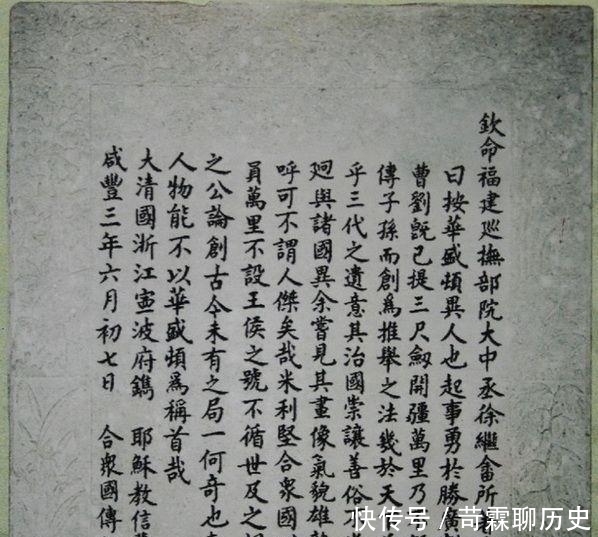 欽命福建廵撫部院大中丞徐繼畬所
曰按華盛頓異人也起事勇於勝廣
曹劉旣已提三尺劒開疆萬里乃
傳子孫而創爲推舉之法幾於天
乎三代之遺意其治國崇讓善俗不
廻與諸國異余嘗見其畫像氣貌雄
呼可不謂人傑矣哉米利堅合衆國
員萬里不設王侯之號不循世及之
之公論創古今未有之局一何奇也
人物能不以華盛頓爲稱首哉
大清國浙江寍波府鐫 耶穌教信
咸豐三年六月初七日 合衆國傳
快传号／苛霖聊历史